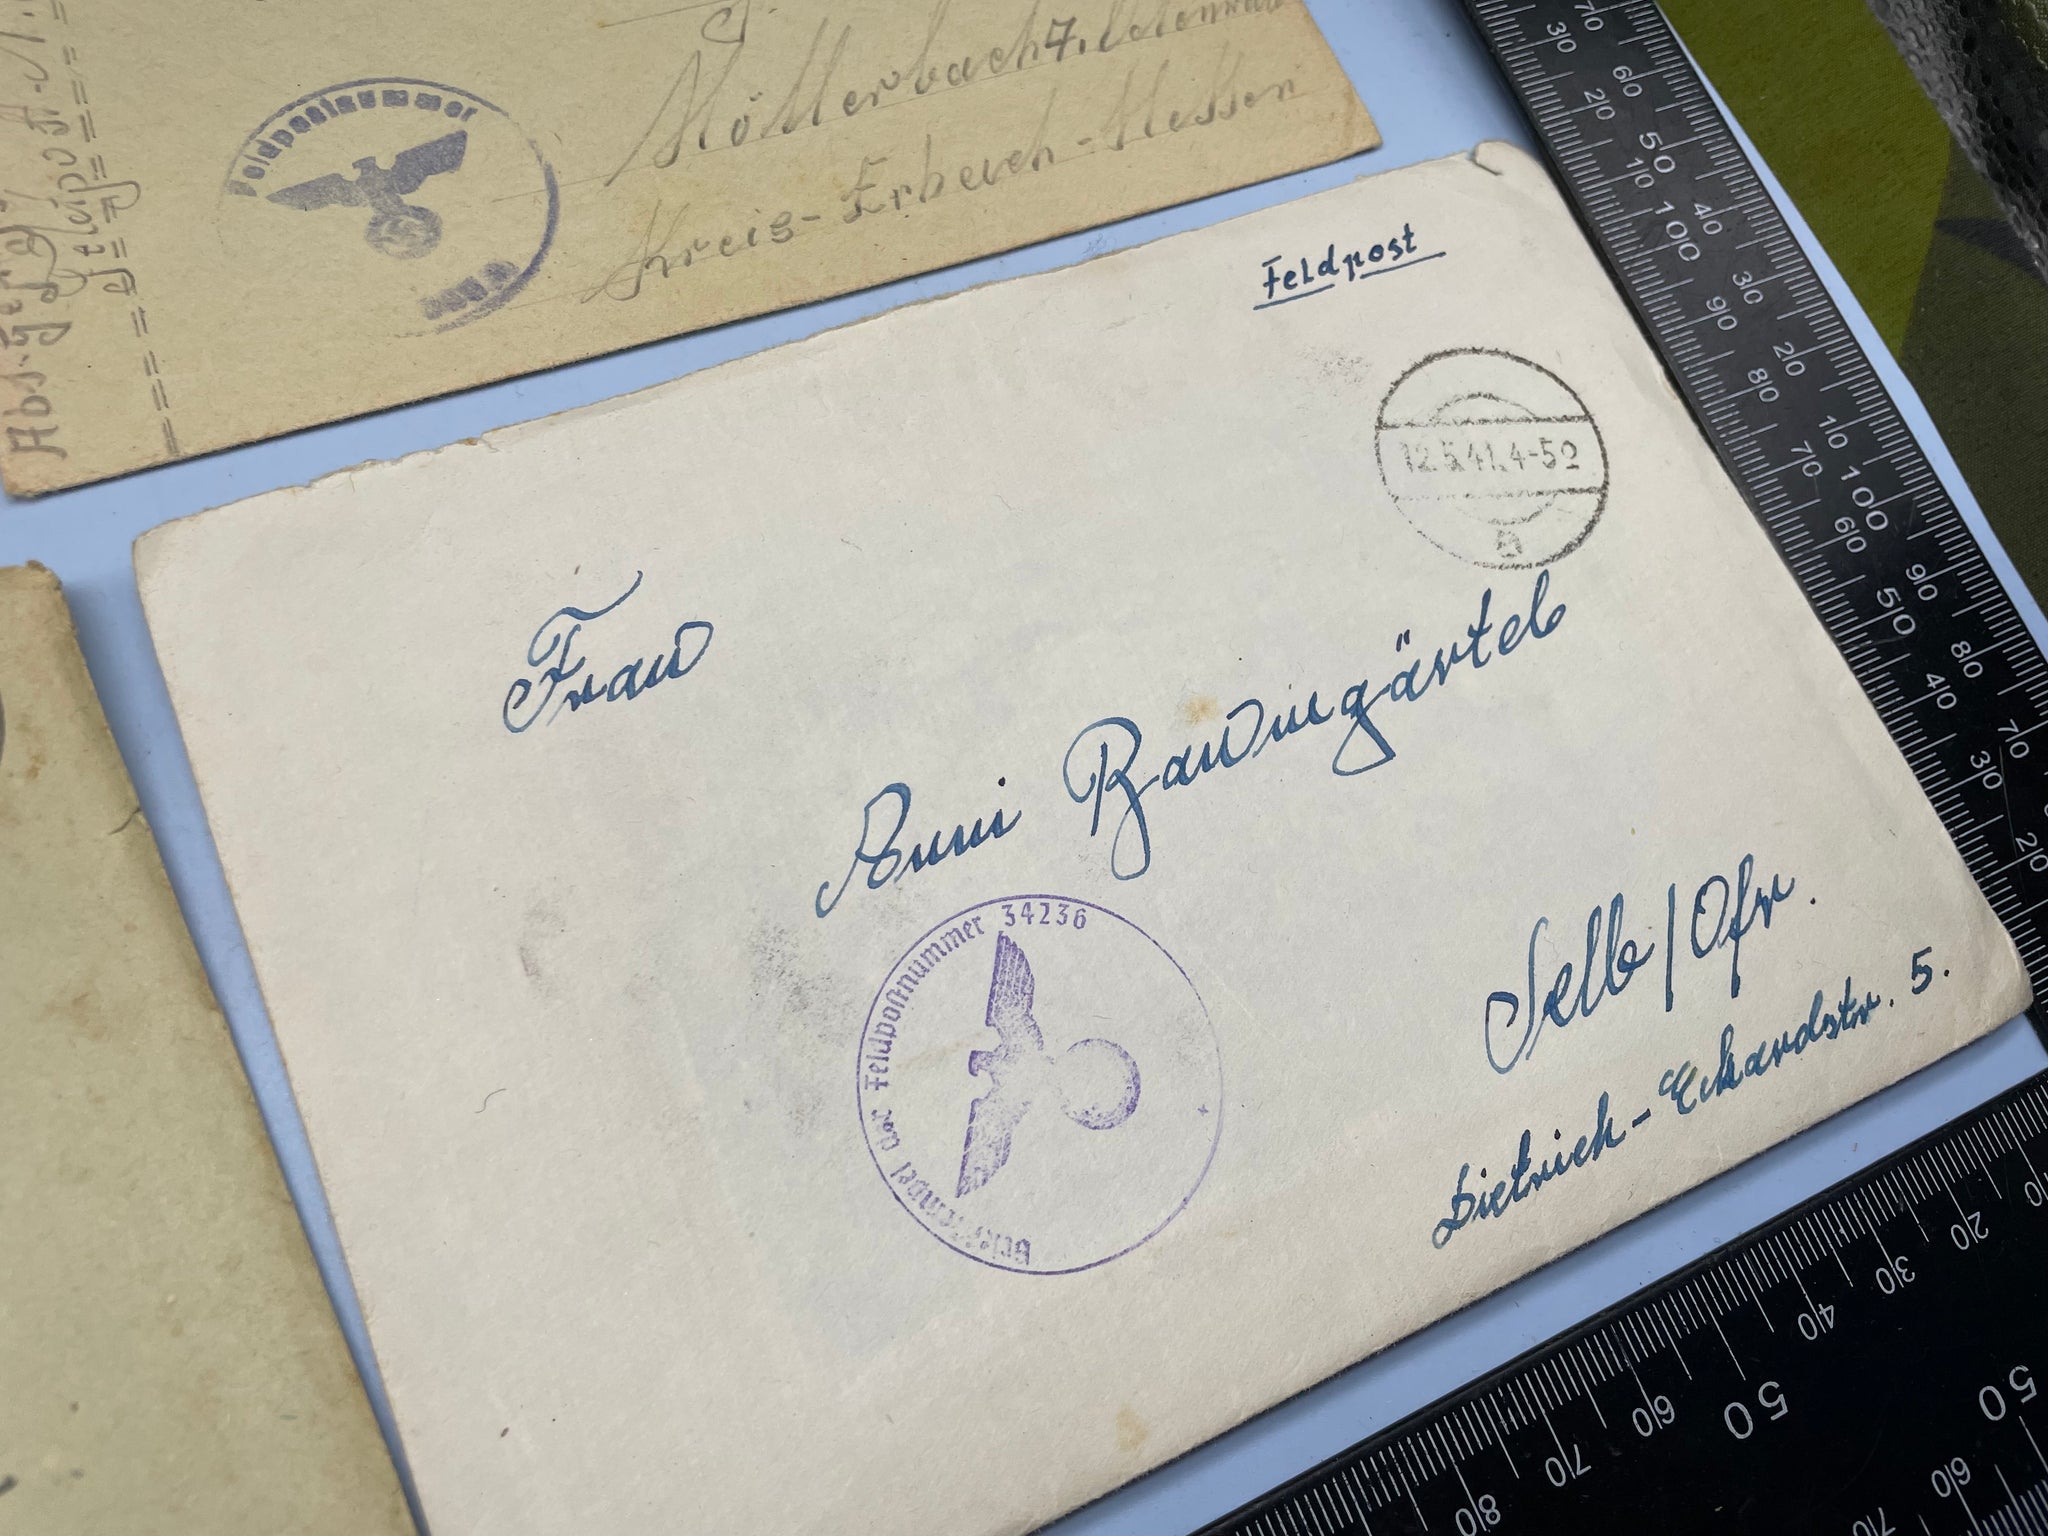 Feldpostnummer
Höllerbach
Kreis-Erbach-Hessen
Feldpost
12.5.41.4-5
a
Frau
Anni Baumgärtel
Briefstempel der Feldpostnummer 34236
Selb/Ofr.
Dietrich-Eckardstr. 5.
70
30
60
20
50
10
100
40
90
30
80
20
70
10
100
60
90
50
80
40
70
30
20
10
20
30
40
50
60
70
80
50
60
70